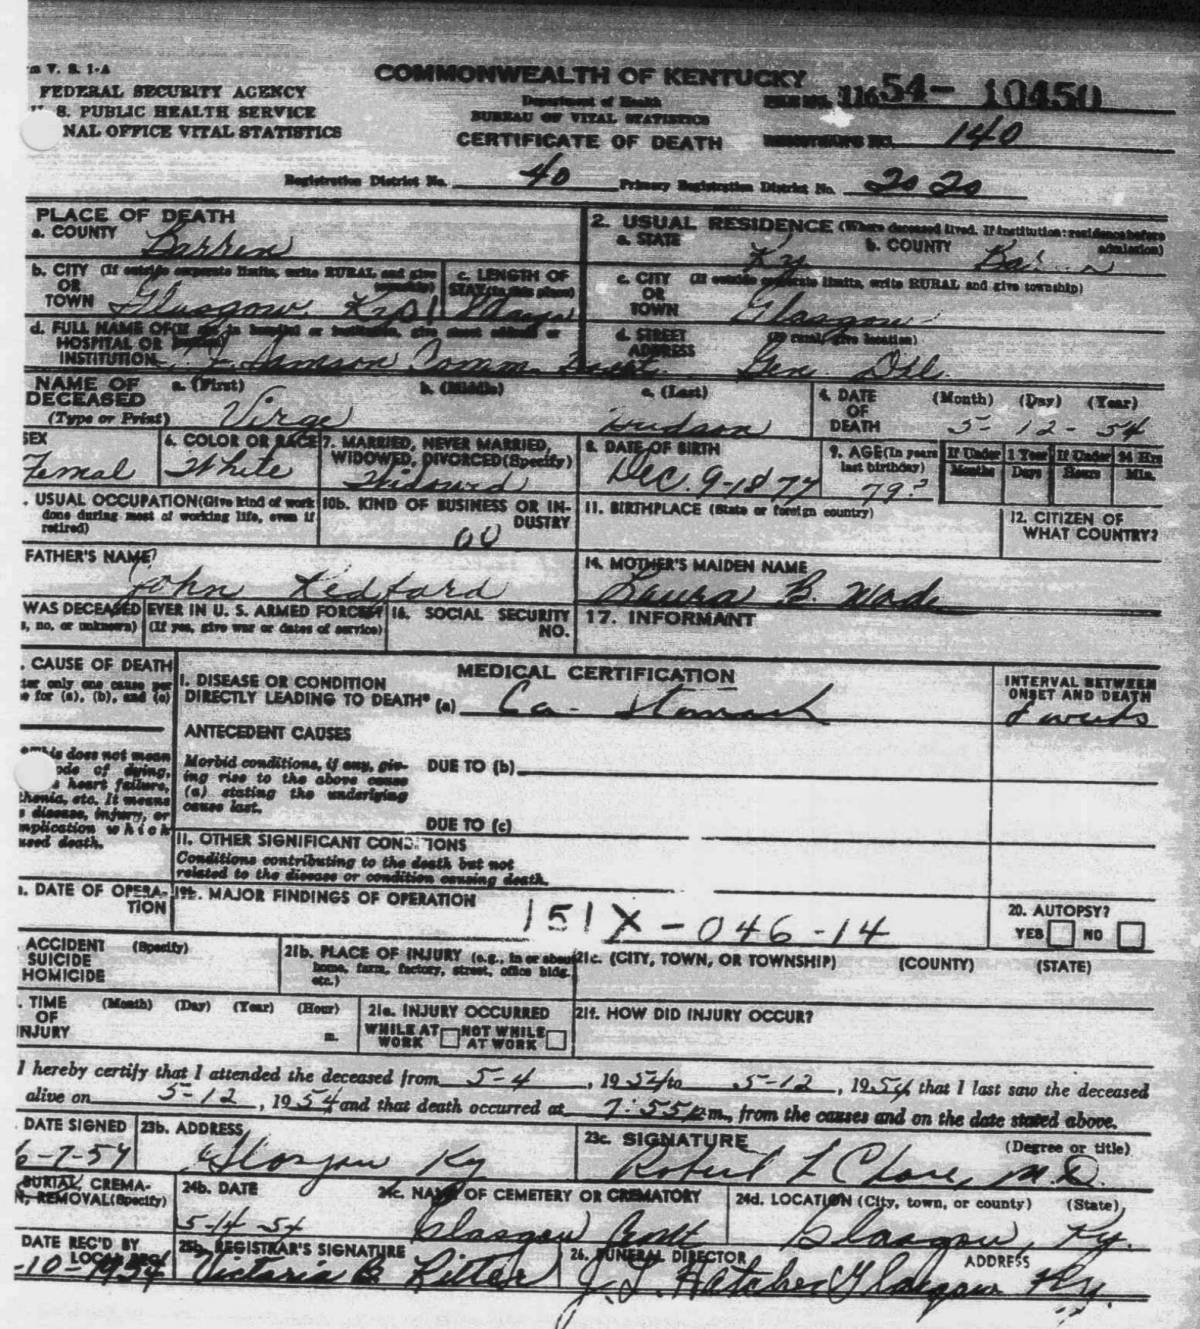 m V. S. 1-A
COMMONWEALTH OF KENTUCKY
FEDERAL SECURITY AGENCY
Department of Health
FILE NO. 116 54- 10450
U. S. PUBLIC HEALTH SERVICE
BUREAU OF VITAL STATISTICS
NAL OFFICE VITAL STATISTICS
CERTIFICATE OF DEATH
REGISTRAR'S NO. 140
Registration District No. 40 Primary Registration District No. 2020
PLACE OF DEATH
2. USUAL RESIDENCE (Where deceased lived. If institution: residence before admission)
a. COUNTY Barren
a. STATE Ky b. COUNTY Bar
b. CITY (If outside corporate limits, write RURAL and give township) OR TOWN Glasgow
c. LENGTH OF STAY (in this place)
c. CITY (If outside corporate limits, write RURAL and give township) OR TOWN Glasgow
d. FULL NAME OF (If not in hospital or institution, give street address or location) HOSPITAL OR INSTITUTION T. J. Samson Comm.
d. STREET ADDRESS (If rural, give location) Gen. Del.
NAME OF DECEASED (Type or Print)
a. (First) Virge b. (Middle) c. (Last) Hudson
4. DATE OF DEATH (Month) (Day) (Year) 5- 12- 54
SEX Femal
6. COLOR OR RACE White
7. MARRIED, NEVER MARRIED, WIDOWED, DIVORCED (Specify) Widowed
8. DATE OF BIRTH Dec. 9-1877
9. AGE (In years last birthday) 79?
If Under 1 Year If Under 24 Hrs
Months Days Hours Min.
. USUAL OCCUPATION (Give kind of work done during most of working life, even if retired)
10b. KIND OF BUSINESS OR INDUSTRY 00
11. BIRTHPLACE (State or foreign country)
12. CITIZEN OF WHAT COUNTRY?
FATHER'S NAME John Redford
14. MOTHER'S MAIDEN NAME Laura B. Wade
WAS DECEASED EVER IN U. S. ARMED FORCES?
s, no, or unknown) (If yes, give war or dates of service)
16. SOCIAL SECURITY NO.
17. INFORMANT
. CAUSE OF DEATH
ter only one cause per
e for (a), (b), and (c)
MEDICAL CERTIFICATION
I. DISEASE OR CONDITION DIRECTLY LEADING TO DEATH* (a) Ca- Stomach
INTERVAL BETWEEN ONSET AND DEATH
weeks
ANTECEDENT CAUSES
Morbid conditions, if any, giving rise to the above cause (a) stating the underlying cause last.
DUE TO (b)
DUE TO (c)
this does not mean
ode of dying,
s heart failure,
thenia, etc. It means
e disease, injury, or
mplication which
used death.
II. OTHER SIGNIFICANT CONDITIONS
Conditions contributing to the death but not
related to the disease or condition causing death.
. DATE OF OPERATION
19b. MAJOR FINDINGS OF OPERATION
151X-046-14
20. AUTOPSY?
YES NO
. ACCIDENT (Specify) SUICIDE HOMICIDE
21b. PLACE OF INJURY (e.g., in or about home, farm, factory, street, office bldg. etc.)
21c. (CITY, TOWN, OR TOWNSHIP) (COUNTY) (STATE)
. TIME OF INJURY (Month) (Day) (Year) (Hour) m.
21e. INJURY OCCURRED
WHILE AT WORK NOT WHILE AT WORK
21f. HOW DID INJURY OCCUR?
I hereby certify that I attended the deceased from 5-4, 1954 to 5-12, 1954 that I last saw the deceased
alive on 5-12, 1954 and that death occurred at 7:55 p m., from the causes and on the date stated above.
. DATE SIGNED 6-7-54
23b. ADDRESS Glasgow Ky
23c. SIGNATURE (Degree or title) Robert L Chase, M.D.
BURIAL, CREMATION, REMOVAL (Specify)
24b. DATE 5-14-54
24c. NAME OF CEMETERY OR CREMATORY Glasgow
24d. LOCATION (City, town, or county) (State) Glasgow, Ky.
DATE REC'D BY LOCAL REG. -10-1954
25b. REGISTRAR'S SIGNATURE Victoria B. Ritter
26. FUNERAL DIRECTOR ADDRESS
J. L. Hatcher Glasgow Ky.